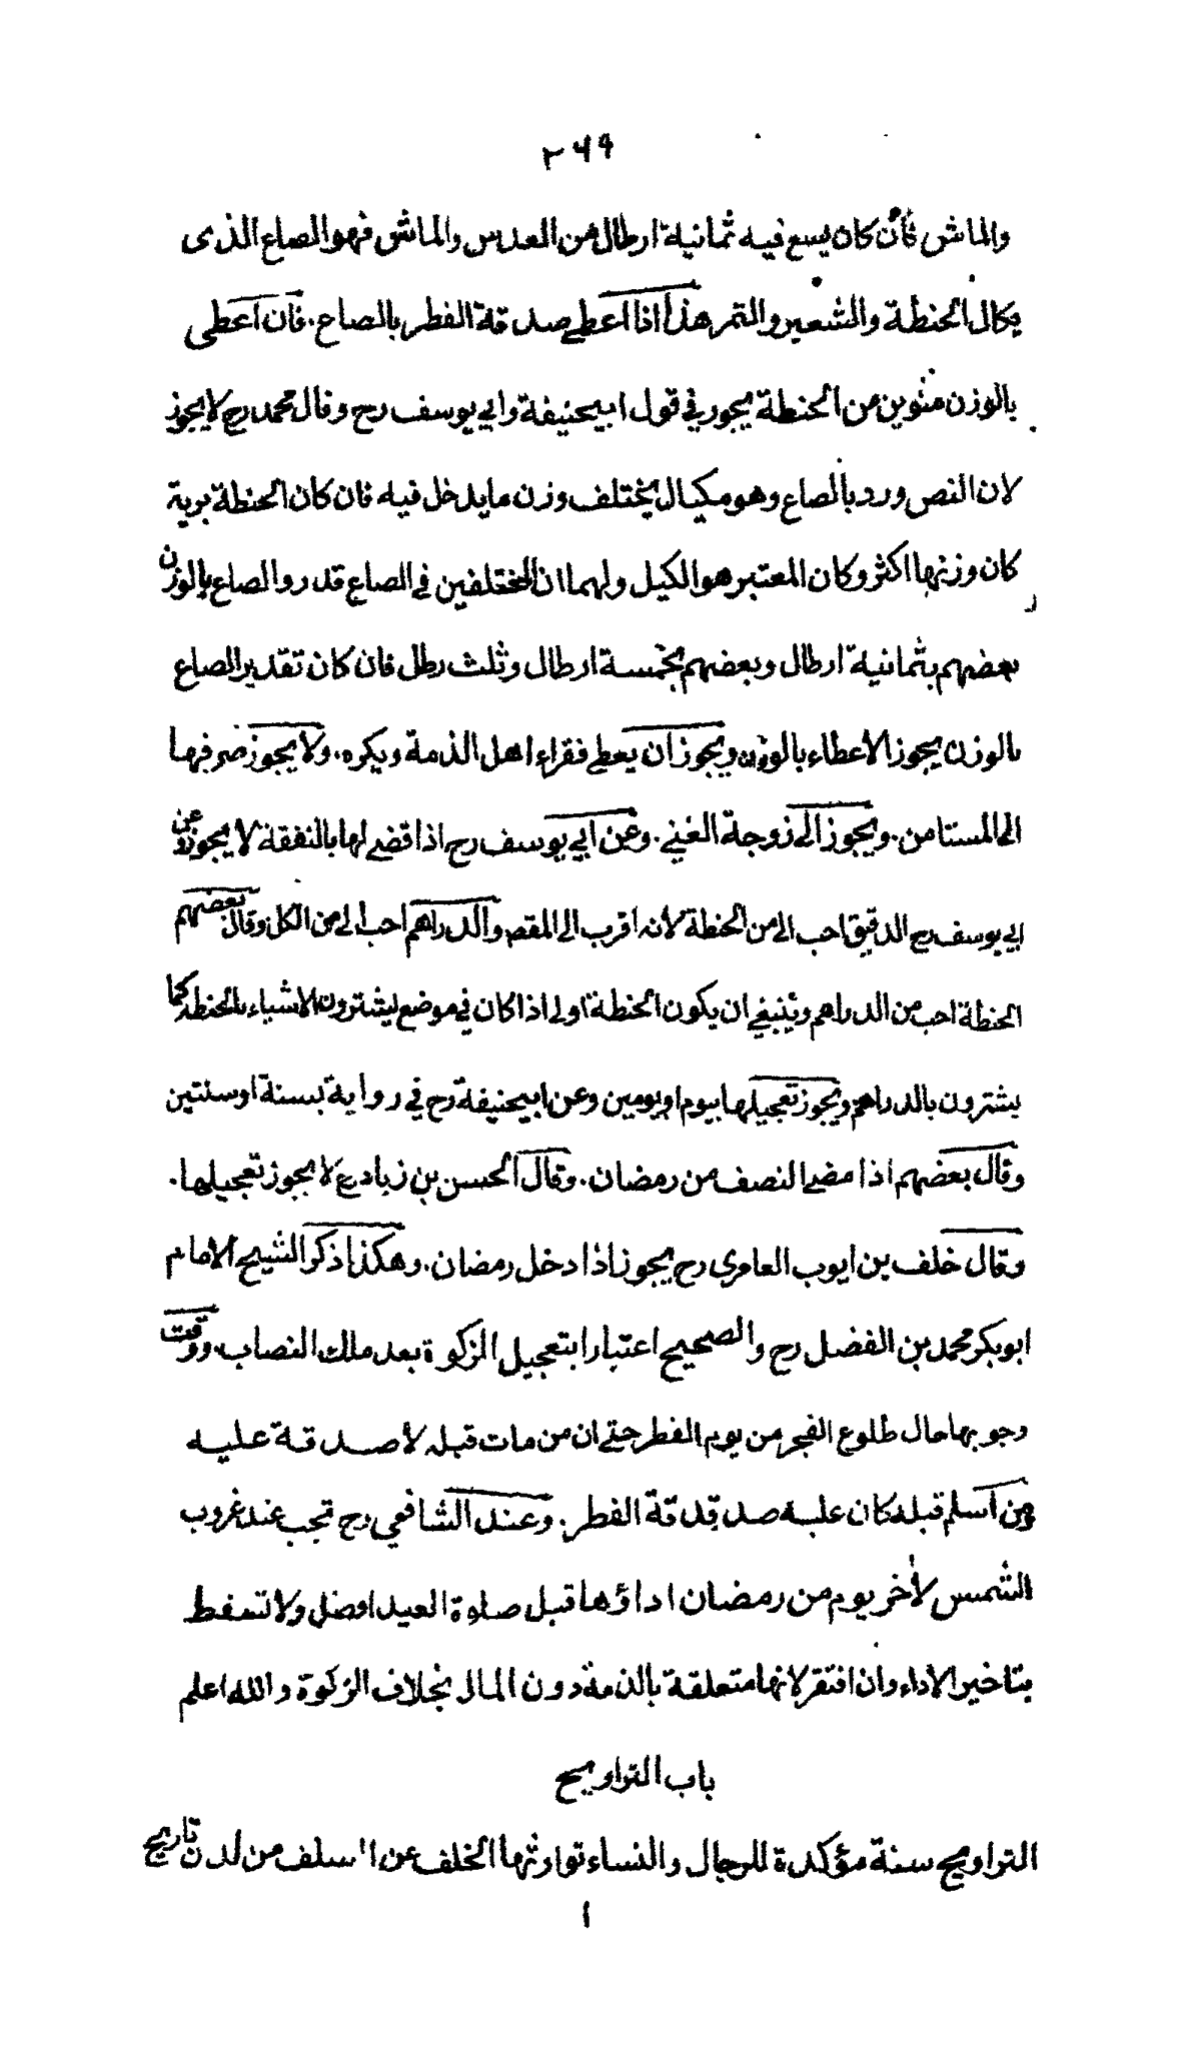 ٢٦٩
والماش فأن كان يسع فيه ثمانية ارطال من العدس والماش فهو الصاع الذى
يكال الحنطة والشعير والتمر هذا اذا اعطى صدقة الفطر بالصاع. فان اعطى
بالوزن منوين من الحنطة يجوز في قول ابيحنيفة وابي يوسف رح وقال محمد رح لا يجوز
لان النص ورد بالصاع وهو مكيال يختلف وزن ما يدخل فيه فان كان الحنطة برية
كان وزنها اكثر وكان المعتبر هو الكيل ولهما ان المختلفين في الصاع قدروا الصاع بالوزن
بعضهم بثمانية ارطال وبعضهم بخمسة ارطال وثلث رطل فان كان تقدير الصاع
بالوزن يجوز الاعطاء بالوزن ويجوز ان يعطى فقراء اهل الذمة ويكره. ولا يجوز صرفها
الى المستامن. ويجوز الى زوجة الغني. وعن ابي يوسف رح اذا قضى لها بالنفقة لا يجوز وعن
ابي يوسف رح الدقيق احب الى من الحنطة لانه اقرب الى المقصد والدراهم احب الى من الكل وقال بعضهم
الحنطة احب من الدراهم وينبغي ان يكون الحنطة اولى اذا كان في موضع يشترون الاشياء بالحنطة كما
يشترون بالدراهم ويجوز تعجيلها بيوم او يومين وعن ابيحنيفة رح في رواية بسنة او سنتين
وقال بعضهم اذا مضى النصف من رمضان. وقال الحسن بن زياد رح لا يجوز تعجيلها.
وقال خلف بن ايوب العامرى رح يجوز اذا دخل رمضان. وهكذا ذكر الشيخ الامام
ابو بكر محمد بن الفضل رح والصحيح اعتبارا بتعجيل الزكوة بعد ملك النصاب. ووقت
وجوبها حال طلوع الفجر من يوم الفطر حتى ان من مات قبله لا صدقة عليه
ومن اسلم قبله كان عليه صدقدقة الفطر. وعند الشافعي رح تجب عند غروب
الشمس لأخر يوم من رمضان اداؤها قبل صلوة العيد افضل ولا تسقط
بتاخير الاداء وان افتقر لانها متعلقة بالذمة دون المال بخلاف الزكوة والله اعلم
باب التراويح
التراويح سنة مؤكدة للرجال والنساء توارثها الخلف عن السلف من لدن تاريخ
ا